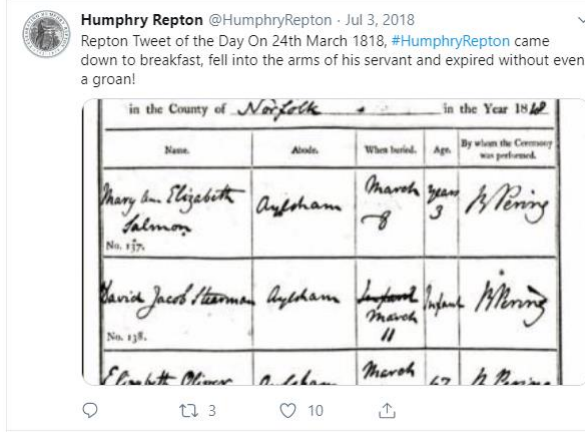 Humphry Repton @HumphryRepton · Jul 3, 2018
Repton Tweet of the Day On 24th March 1818, #HumphryRepton came
down to breakfast, fell into the arms of his servant and expired without even
a groan!
in the County of Norfolk in the Year 1818
Name. Abode. When buried. Age. By whom the Ceremony was performed.
Mary Ann Elizabeth Salmon
No. 137.
Aylsham
March 8
years 3
David Jacob Stearman
No. 138.
Aylsham
March 11
Infant
Elizabeth Oliver
Aylsham
March
67
3 10